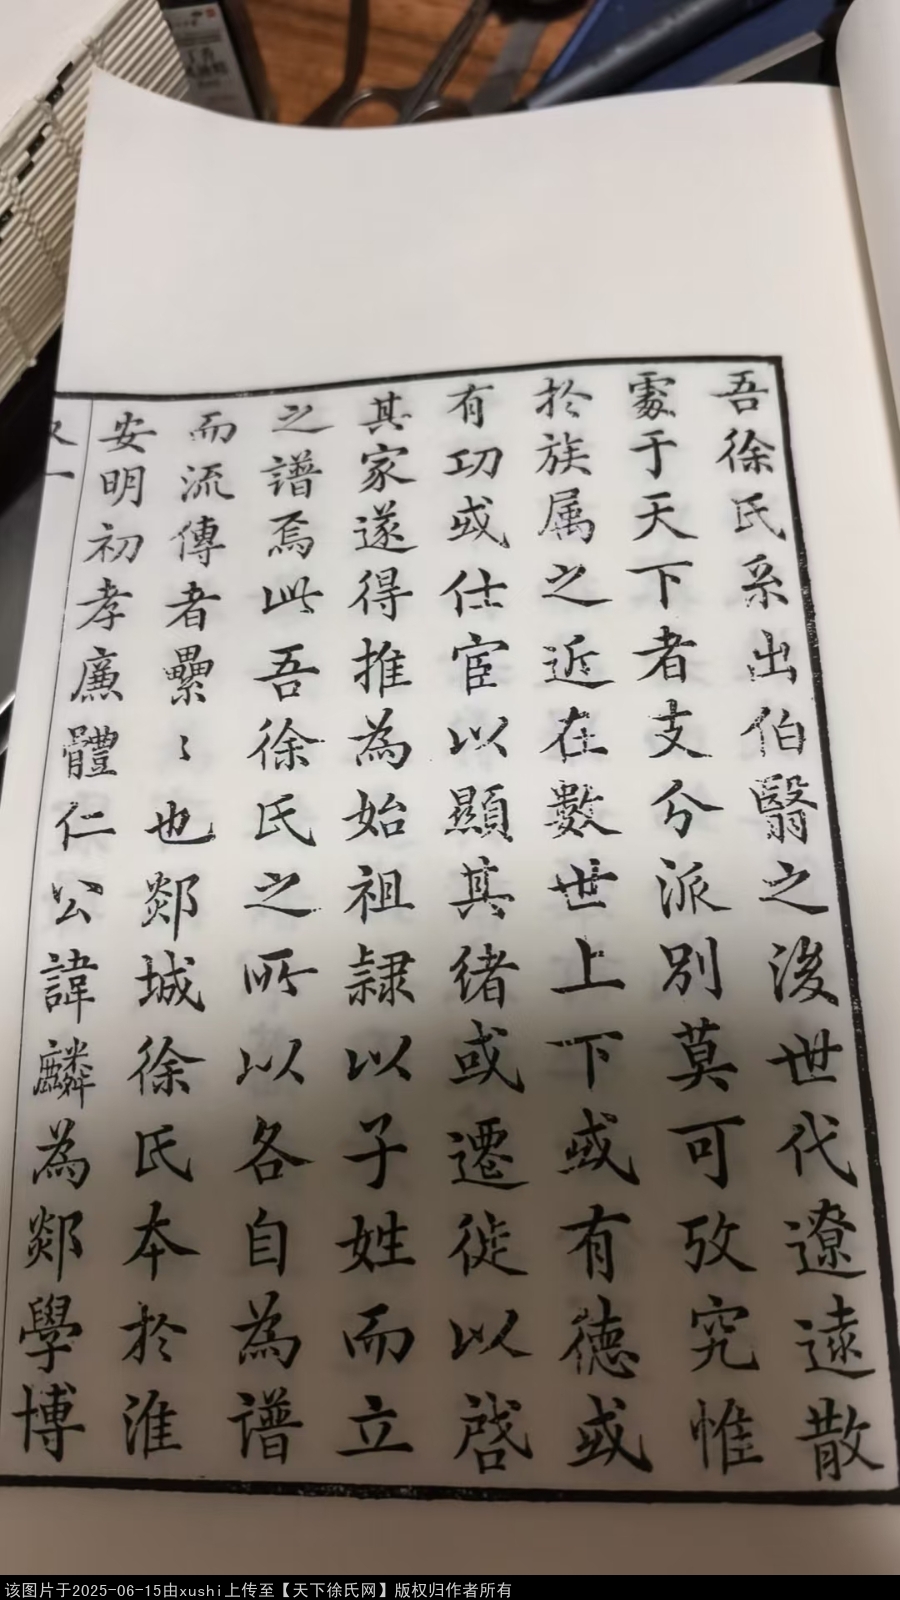 吾徐氏系出伯翳之後世代遼遠散
處于天下者支分派別莫可攷究惟
於族属之近在數世上下或有德或
有功或仕宦以顯其緒或遷徙以啓
其家遂得推為始祖隷以子姓而立
之譜焉此吾徐氏之所以各自為譜
而流傳者纍〻也郯城徐氏本於淮
安明初孝廉體仁公諱麟為郯學博
该图片于2025-06-15由xushi上传至【天下徐氏网】版权归作者所有